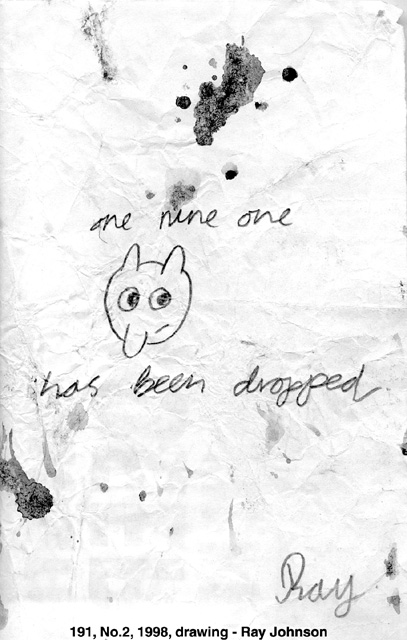 one nine one
has been dropped
Ray
191, No.2, 1998, drawing - Ray Johnson